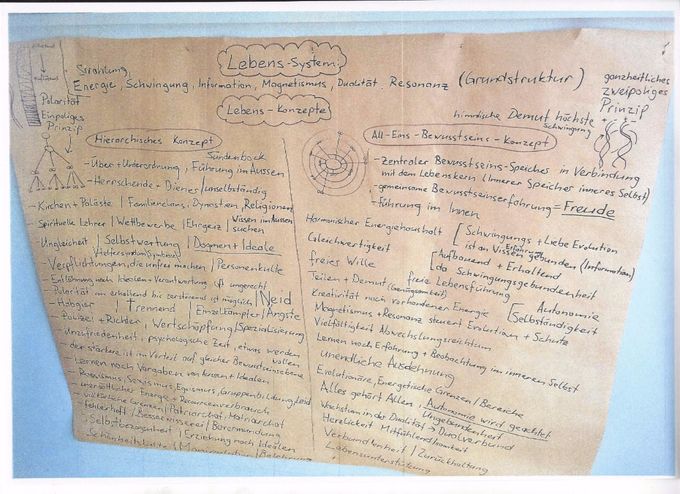 Lebens-System:
Strahlung,
Energie, Schwingung, Information, Magnetismus, Dualität, Resonanz (Grundstruktur)
Lebens-Konzepte
ganzheitliches
zweipoliges
Prinzip
himmlische Demut höchste
Schwingung
Polarität
Einpoliges
Prinzip
Hierarchisches Konzept
Sündenbock
- Über + Unterordnung, Führung im Aussen
- Herrschende - Diener / unselbständig
- Kirchen + Paläste / Familienclans, Dynastien, Religionen
Spirituelle Lehrer / Wettbewerbe / Ehrgeiz / Wissen im Aussen
suchen
Ungleichheit / Selbstwertung / Dogmen + Ideale
- Verpflichtungen, die unfrei machen / Personenkulte
- Entlohnung nach Idealen + Verantwortung ungerecht
- Polarität nur erhaltend bis zerstörend ist möglich / Neid
- Habgier / Trennend / Einzelkämpfer / Ängste
- Polizei + Richter, Wertschöpfung / Spezialisierung
- Unzufriedenheit, psychologische Zeit, etwas werden
wollen
der stärkere ist im Vorteil auf gleicher Bewusstseinsebene
- Lernen nach Vorgaben von Aussen + Idealen
- Rassismus, Sexismus, Egoismus, Gruppenbildung, Leid
- unersättlicher Energie + Ressourcenverbrauch
- Grenzen / Patriarchat, Matriarchat
- fehlerhaft / Besserwisserei / Bevormundung
- Selbstbezogenheit / Erziehung nach Idealen
Schönheitskult / Manipulation / Belehrung
All-Eins-Bewusstseins-Konzept
- Zentraler Bewusstseins-Speicher in Verbindung
mit dem Lebenskern (Innerer Speicher inneres Selbst)
- gemeinsame Bewusstseinserfahrung = Freude
- Führung im Innen
Harmonischer Energiehaushalt [Schwingungs + Liebe Evolution
ist an Wissen gebunden (Information)
Erfahrung
Gleichwertigkeit [Aufbauend + Erhaltend
freies Wille da Schwingungsgebundenheit
Teilen + Demut (Genügsamkeit) freie Lebensführung
Kreativität nach vorhandener Energie [Autonomie
Selbständigkeit
Magnetismus + Resonanz steuert Evolution + Schutz
Vielfältigkeit Abwechslungsreichtum
Lernen nach Erfahrung + Beobachtung im inneren Selbst
unendliche Ausdehnung
Evolutionäre, Energetische Grenzen / Bereiche
Alles gehört Allen / Autonomie wird geachtet
Ungebundenheit
Wachstum in der Dualität → Dualverbund
Herzlichkeit Mitfühlend
Verbundenheit / Zurückhaltung
Lebensunterstützung